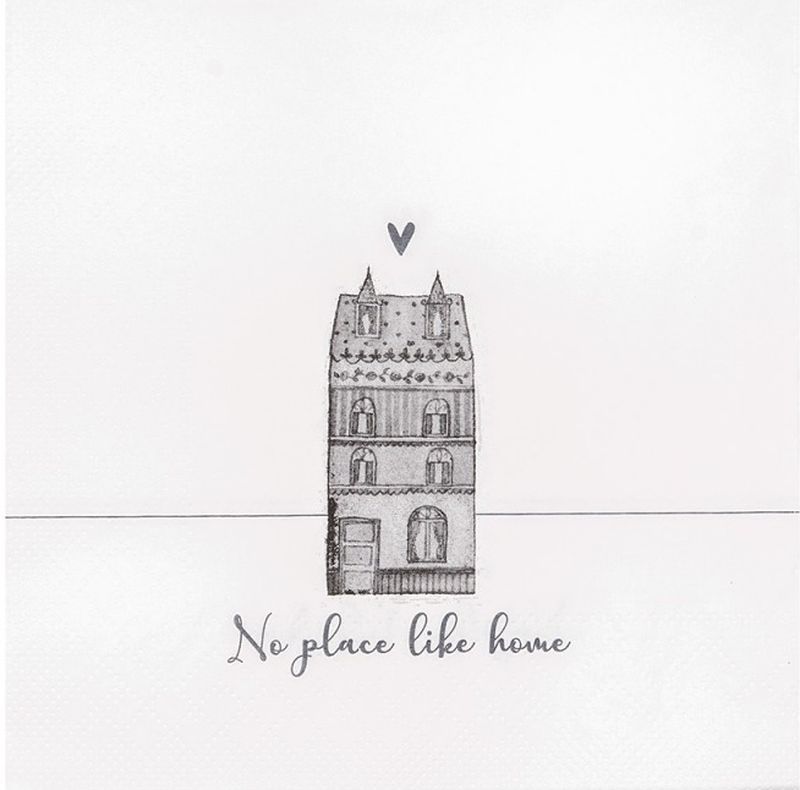 No place like home